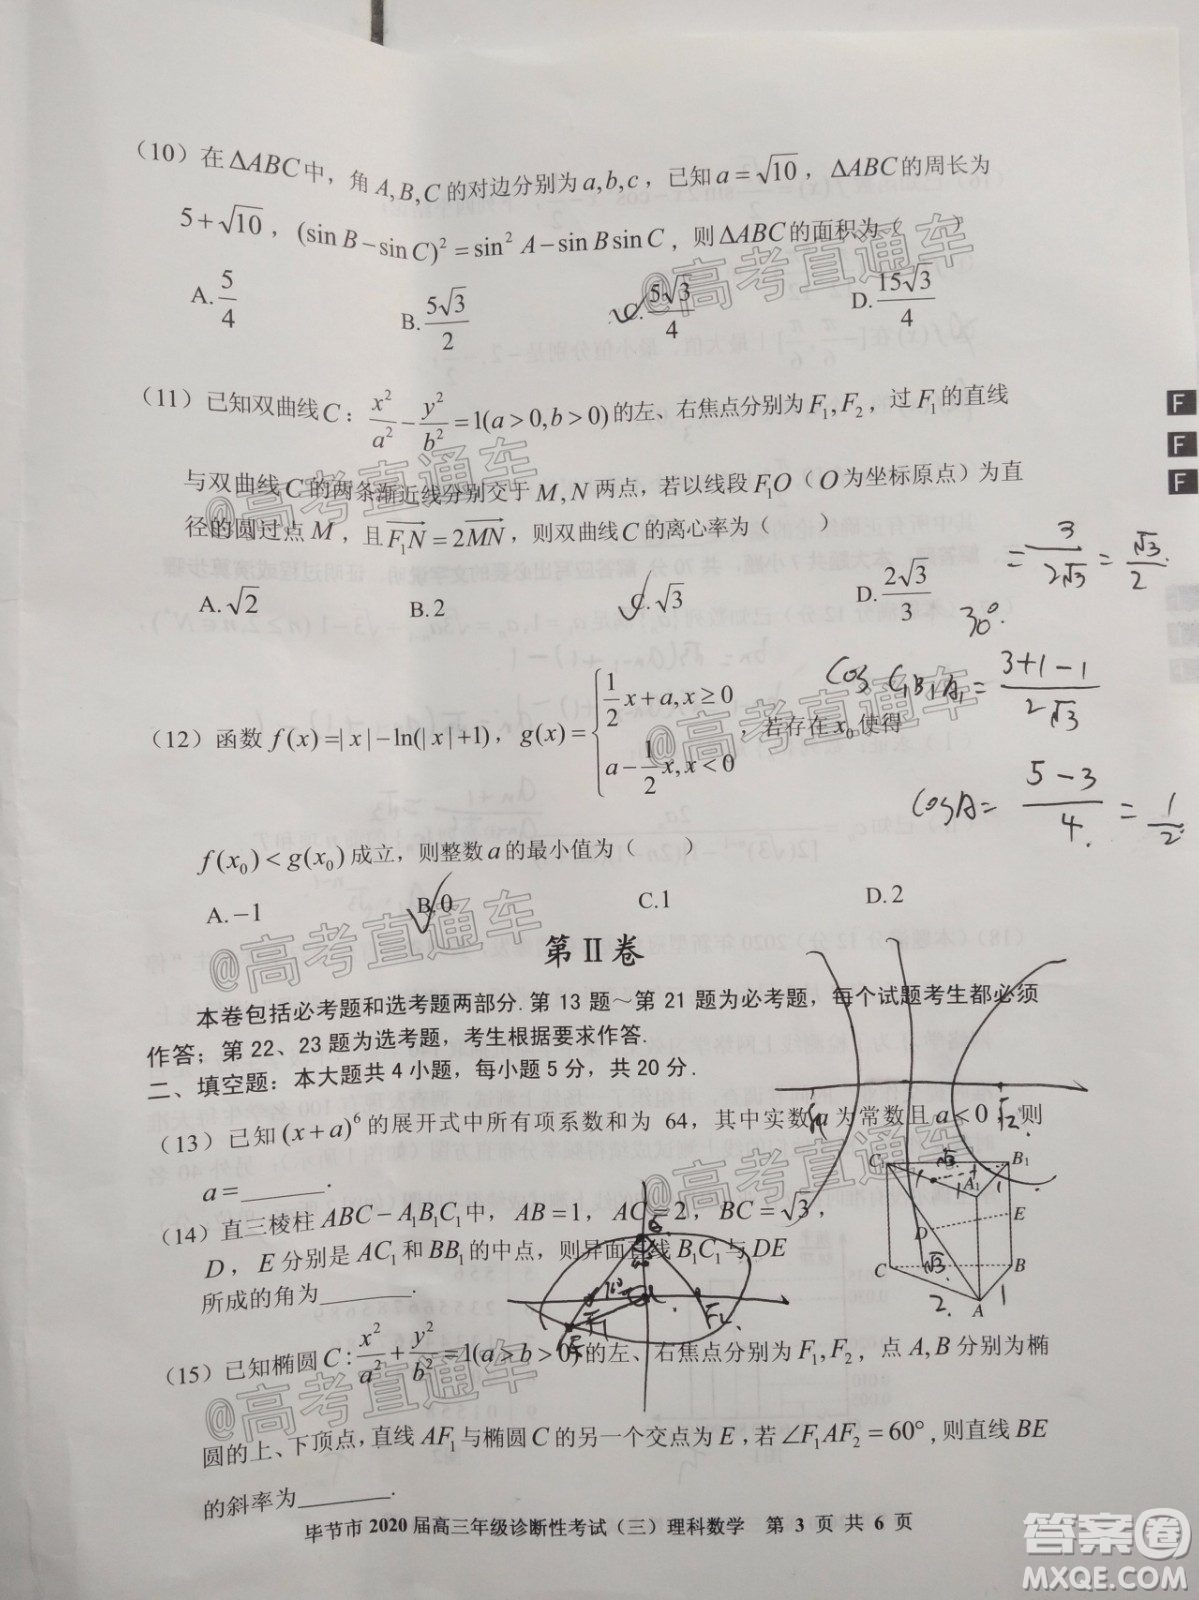 （10）在ΔABC中，角A,B,C的对边分别为a,b,c，已知a=√10，ΔABC的周长为
5+√10，(sin B−sin C)²=sin² A−sin B sin C，则ΔABC的面积为（　　）
A. 5/4　B. 5√3/2　C. 5√3/4　D. 15√3/4
（11）已知双曲线C：x²/a²−y²/b²=1(a>0,b>0)的左、右焦点分别为F₁,F₂，过F₁的直线
与双曲线C的两条渐近线分别交于M,N两点，若以线段F₁O（O为坐标原点）为直
径的圆过点M，且F₁N=2MN，则双曲线C的离心率为（　　）
= 3/2√3 = √3/2.
A. √2　B. 2　C. √3　D. 2√3/3
30°.
cos C₁B₁A₁= (3+1−1)/2√3
（12）函数f(x)=|x|−ln(|x|+1)，g(x)={1/2x+a,x≥0　a−1/2x,x<0　若存在x₀使得
cosA= (5−3)/4. = 1/2
f(x₀)<g(x₀)成立，则整数a的最小值为（　　）
A. −1　B. 0　C. 1　D. 2
第Ⅱ卷
本卷包括必考题和选考题两部分. 第13题～第21题为必考题，每个试题考生都必须
作答；第22、23题为选考题，考生根据要求作答.
二、填空题：本大题共4小题，每小题5分，共20分.
（13）已知(x+a)⁶的展开式中所有项系数和为64，其中实数a为常数且a<0，则
a=______.
（14）直三棱柱ABC−A₁B₁C₁中，AB=1，AC=2，BC=√3，
D，E分别是AC₁和BB₁的中点，则异面直线B₁C₁与DE
所成的角为______.
C₁ B₁ A₁ E D C B A
（15）已知椭圆C:x²/a²+y²/b²=1(a>b>0)的左、右焦点分别为F₁,F₂，点A,B分别为椭
圆的上、下顶点，直线AF₁与椭圆C的另一个交点为E，若∠F₁AF₂=60°,则直线BE
的斜率为______.
毕节市2020届高三年级诊断性考试（三）理科数学　第 3 页 共 6 页
F
F
F
@高考直通车
@高考直通车
@高考直通车
@高考直通车
@高考直通车
@高考直通车
答案圈
MXQE.COM